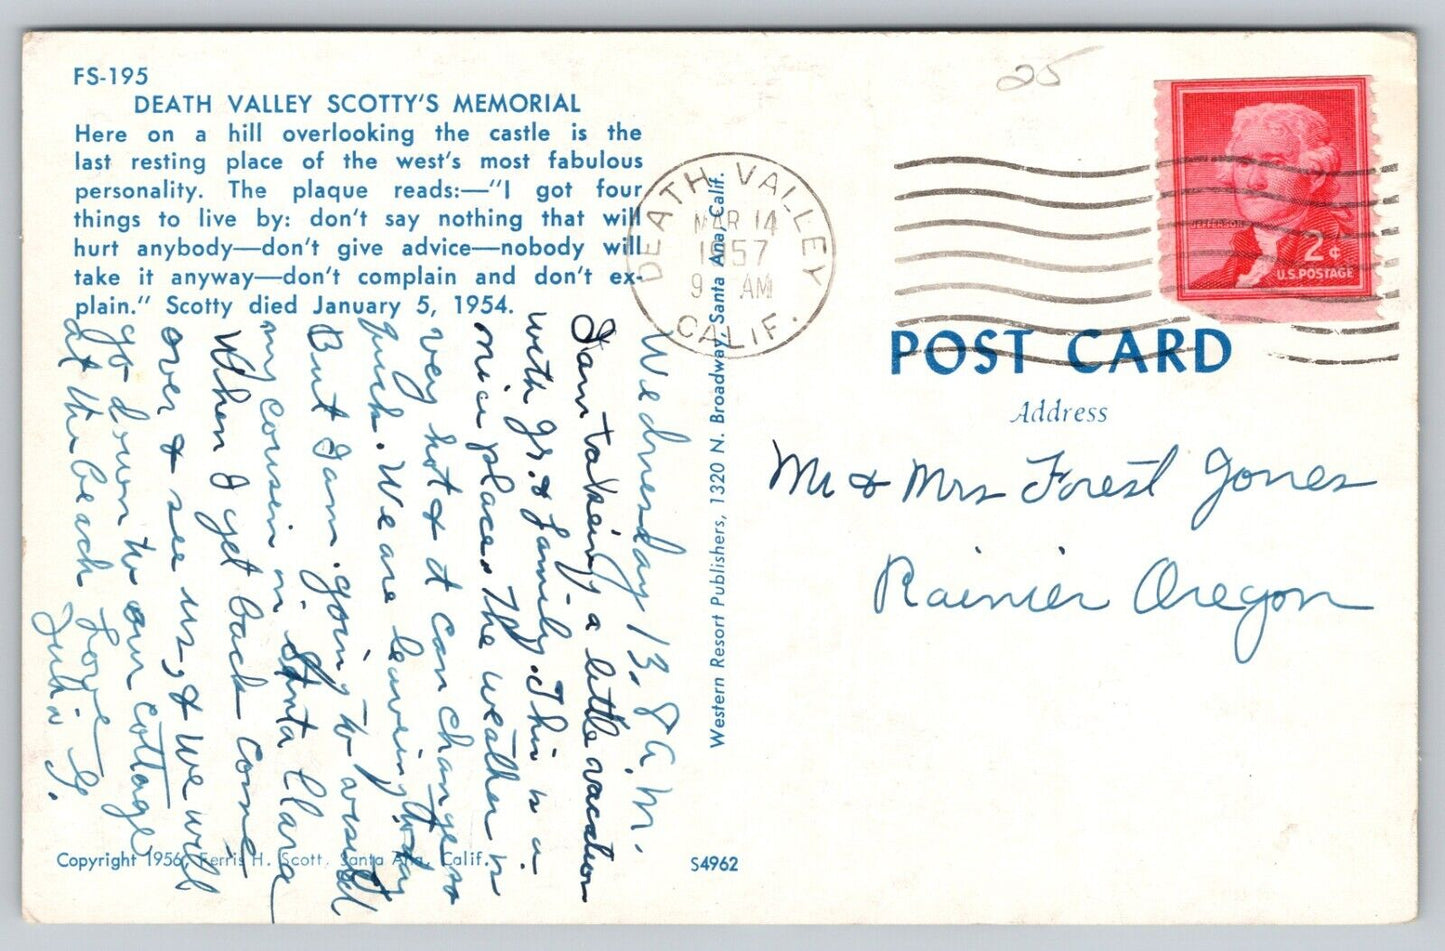 FS-195
DEATH VALLEY SCOTTY'S MEMORIAL
Here on a hill overlooking the castle is the
last resting place of the west's most fabulous
personality. The plaque reads:—"I got four
things to live by: don't say nothing that will
hurt anybody—don't give advice—nobody will
take it anyway—don't complain and don't ex-
plain." Scotty died January 5, 1954.
Wednesday 13, 8 A.M.
I am taking a little vacation
with Jr. & family. This is a
nice place. The weather is
very hot & it can change so
quick. We are leaving today
But I am going to visit
my cousin in Santa Clara
When I get back come
over & see us, & we will
go down to our cottage
at the beach Love
Julia G.
Copyright 1956, Ferris H. Scott, Santa Ana, Calif.
S4962
Western Resort Publishers, 1320 N. Broadway, Santa Ana, Calif.
DEATH VALLEY
MAR 14
1957
9 AM
CALIF.
25
JEFFERSON
2¢
U.S. POSTAGE
POST CARD
Address
Mr & Mrs Forest Jones
Rainier Oregon